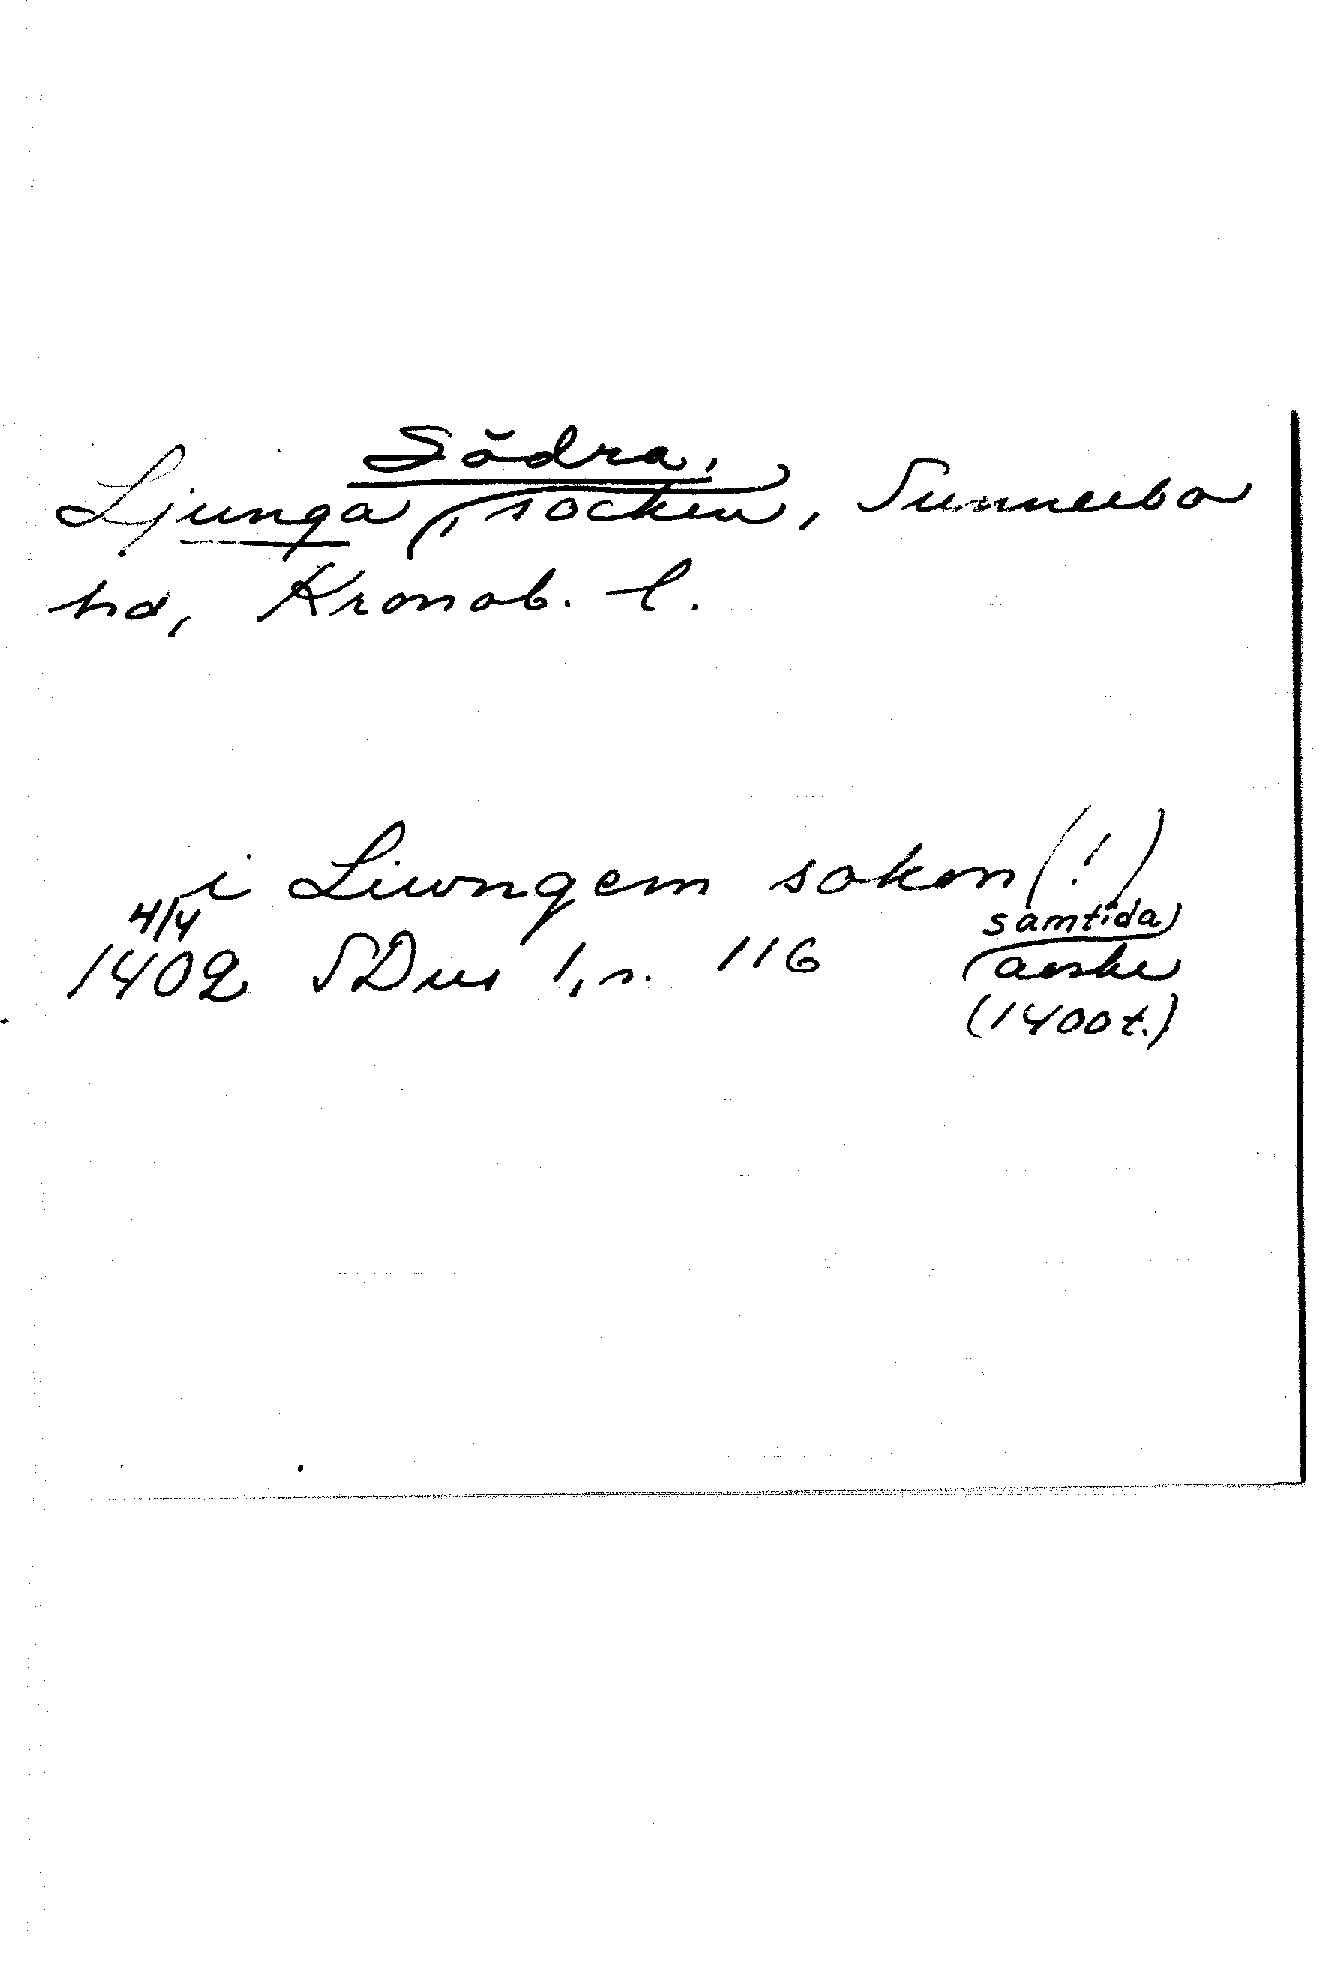 Södra,
Ljunga, socken, Sunnerbo
hd, Kronob. l.
i Liwngem sokon (!)
4/4
1402 SDns 1, s. 116
samtida
avskr
(1400t.)